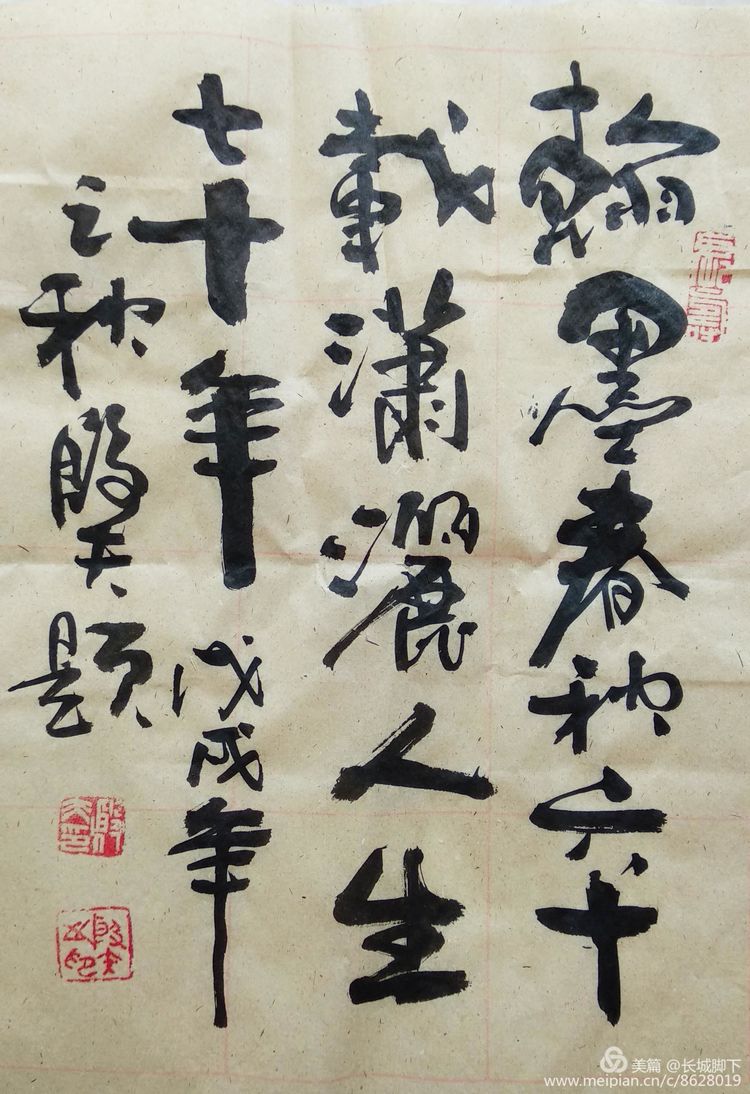 翰墨春秋六十
載瀟灑人生
七十年 戊戌年
之秋殷天題
美篇 @长城脚下
www.meipian.cn/c/8628019